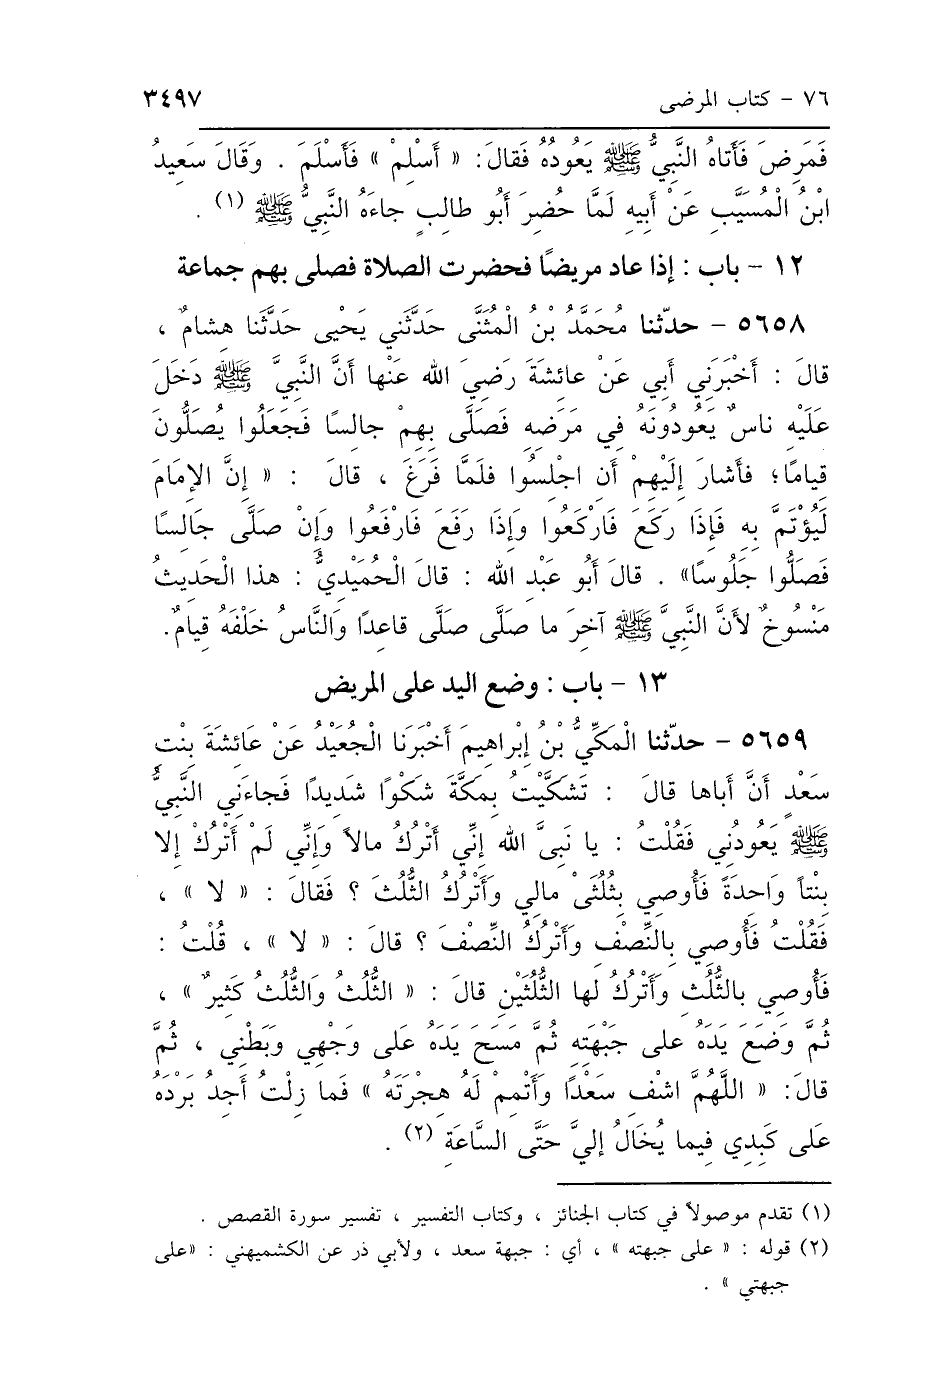 ٧٦ - كتاب المرضى ٣٤٩٧
فَمَرِضَ فَأَتاهُ النَّبيُّ ﷺ يَعُودُهُ فَقالَ: « أَسْلِمْ » فَأَسْلَمَ . وَقَالَ سَعِيدُ
ابْنُ الْمُسَيَّبِ عَنْ أَبيهِ لَمَّا حُضِرَ أَبُو طالِبٍ جاءَهُ النَّبيُّ ﷺ (١) .
١٢ - باب : إذا عاد مريضًا فحضرت الصلاة فصلى بهم جماعة
٥٦٥٨ - حدّثنا مُحَمَّدُ بْنُ الْمُثَنَّى حَدَّثَني يَحْيى حَدَّثَنا هِشامٌ ،
قالَ : أَخْبَرَني أَبي عَنْ عائشَةَ رَضِيَ الله عَنْها أَنَّ النَّبيَّ ﷺ دَخَلَ
عَلَيْهِ ناسٌ يَعُودُونَهُ في مَرَضِهِ فَصَلَّى بِهِمْ جالسًا فَجَعَلُوا يُصَلُّونَ
قيامًا؛ فأشارَ إِلَيْهِمْ أَن اجْلِسُوا فلَمَّا فَرَغَ ، قالَ : « إِنَّ الإمَامَ
لَيُؤْتَمَّ بِهِ فَإِذَا رَكَعَ فَارْكَعُوا وَإِذَا رَفَعَ فَارْفَعُوا وَإِنْ صَلَّى جَالسًا
فَصَلُّوا جَلُوسًا» . قالَ أَبُو عَبْدِ الله : قالَ الْحُمَيْدِيُّ : هذا الْحَديثُ
مَنْسُوخٌ لأَنَّ النَّبيَّ ﷺ آخِرَ ما صَلَّى صَلَّى قاعِدًا وَالنَّاسُ خَلْفَهُ قِيامٌ.
١٣ - باب : وضع اليد على المريض
٥٦٥٩ - حدّثنا الْمَكِّيُّ بْنُ إبْراهيمَ أَخْبَرَنا الْجُعَيْدُ عَنْ عَائِشَةَ بِنْتِ
سَعْدٍ أَنَّ أَباها قالَ : تَشَكَّيْتُ بِمَكَّةَ شَكْوًا شَديدًا فَجاءَني النَّبيُّ
ﷺ يَعُودُني فَقُلْتُ : يا نَبيَّ الله إنِّي أَتْرُكُ مالاً وَإنِّي لَمْ أَتْرُكْ إلا
بِنْتاً وَاحِدَةً فَأُوصي بِثُلُثَيْ مالي وَأَتْرُكُ الثُّلُثَ ؟ فَقالَ : « لا » ،
فَقُلْتُ فَأُوصي بالنِّصْفِ وَأَتْرُكُ النِّصْفَ ؟ قالَ : « لا » ، قُلْتُ :
فَأُوصي بالثُّلُثِ وَأَتْرُكُ لها الثُّلُثَيْنِ قالَ : « الثُّلُثُ وَالثُّلُثُ كَثيرٌ » ،
ثُمَّ وَضَعَ يَدَهُ على جَبْهَتِهِ ثُمَّ مَسَحَ يَدَهُ عَلى وَجْهي وَبَطْني ، ثُمَّ
قالَ: « اللَّهُمَّ اشْفِ سَعْدًا وَأَتْمِمْ لَهُ هِجْرَتَهُ » فَما زِلْتُ أَجِدُ بَرْدَهُ
عَلى كَبِدِي فيما يُخَالُ إليَّ حَتَّى السَّاعَةِ (٢) .
(١) تقدم موصولاً في كتاب الجنائز ، وكتاب التفسير ، تفسير سورة القصص .
(٢) قوله : « على جبهته » ، أي : جبهة سعد ، ولأبي ذر عن الكشميهني : «على
جبهتي » .